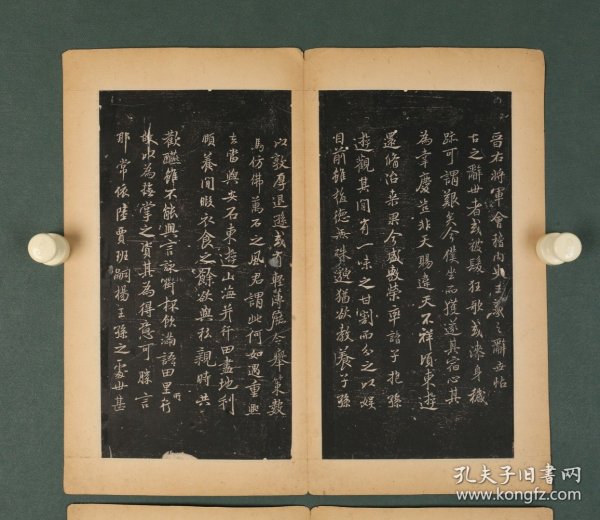 晉右將軍會稽內史王羲之辭世帖
古之辭世者或被髮狂歌或潔身穢
跡可謂艱矣今僕坐而獲遂其宿心其
為幸慶豈非天賜違天不祥頃東遊
還脩治桑果今盛敷榮率諸子抱孫
遊觀其間有一味之甘割而分之以娛
目前雖植德無殊邈猶欲教養子孫
以敦厚退遜或有輕薄庶令舉策數
馬仿佛萬石之風君謂此何如遇重熙
去當與安石東遊山海并行田盡地利
頤養閒暇衣食之餘欲與親時共
歡讌雖不能興言詠銜杯飲滿語田里所行
故以為撫掌之資其為得意可勝言
耶常依陸賈班嗣楊王孫之處世甚
孔夫子旧书网
www.kongfz.com